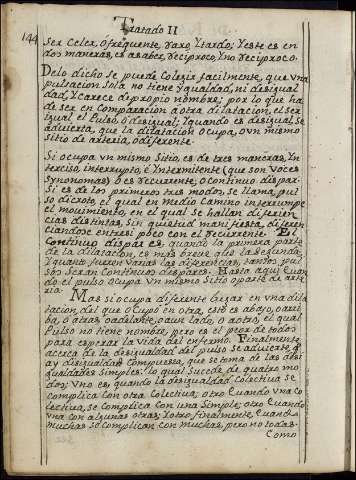 Tratado II
144
Ser Celer, ó frequente, raro, y tardo; Y este es en
dos maneras, es a saber, reciproco, y no reciproco.
Delo dicho se puede Colegir facilmente, que vna
pulsacion Sola no tiene ygualdad, ni desigual
dad, y carece de propio nombre; por lo que ha
de ser en Comparacion á otra dilatacion, el ser
igual el Pulso, ó desigual; y quando es desigual, Se
advierta, que la dilatacion ocupa, ó vn mismo
Sitio de arteria, ó diferente.
Si ocupa vn mismo Sitio, es de tres maneras, Yn
terciso, interrupto, é Intermitente (que son voces
Synonomas) ó es recurrente, ó Continuo dispar.
Si es de los primeros tres modos, se llama, pul
so dicroto, el qual en medio Camino interrumpe
el movimiento, en el qual se hallan diferen
cias distintas, Sin quietud manifiesta, diferen
ciandose entre si poco con el Recurrente. El
Continuo dispar es, quando la primera parte
de la dilatacion, es más breve que la Segunda;
Y quanto fueren varias las diferencias, tantos pul
sos Seran Continuos dispares. Hasta aqui quan
do el pulso ocupa vn mismo Sitio ó parte de arte
ria.
Mas si ocupa diferente lugar en vna dila
tacion, del que ocupó en otra, esto es abajo, ó arri
ba, ó atras, ó adelante, ó a vn lado, ó a otro, el qual
Pulso no tiene nombre, pero es el peor de todos
para esperar la vida del enfermo. Finalmente
acerca de la desigualdad del pulso se advierte, q
ay desigualdad Compuesta, que se toma de las desi
gualdades Simples: lo qual Sucede de quatro mo
dos; Vno es, quando la desigualdad Colectiva se
complica con otra Colectiva; otro quando vna Co
lectiva, se Complica con vna Simple; otro Quando
vna con algunas otras; Y otro, finalmente, quando
muchas se complican con muchas, pero no todas.
Como